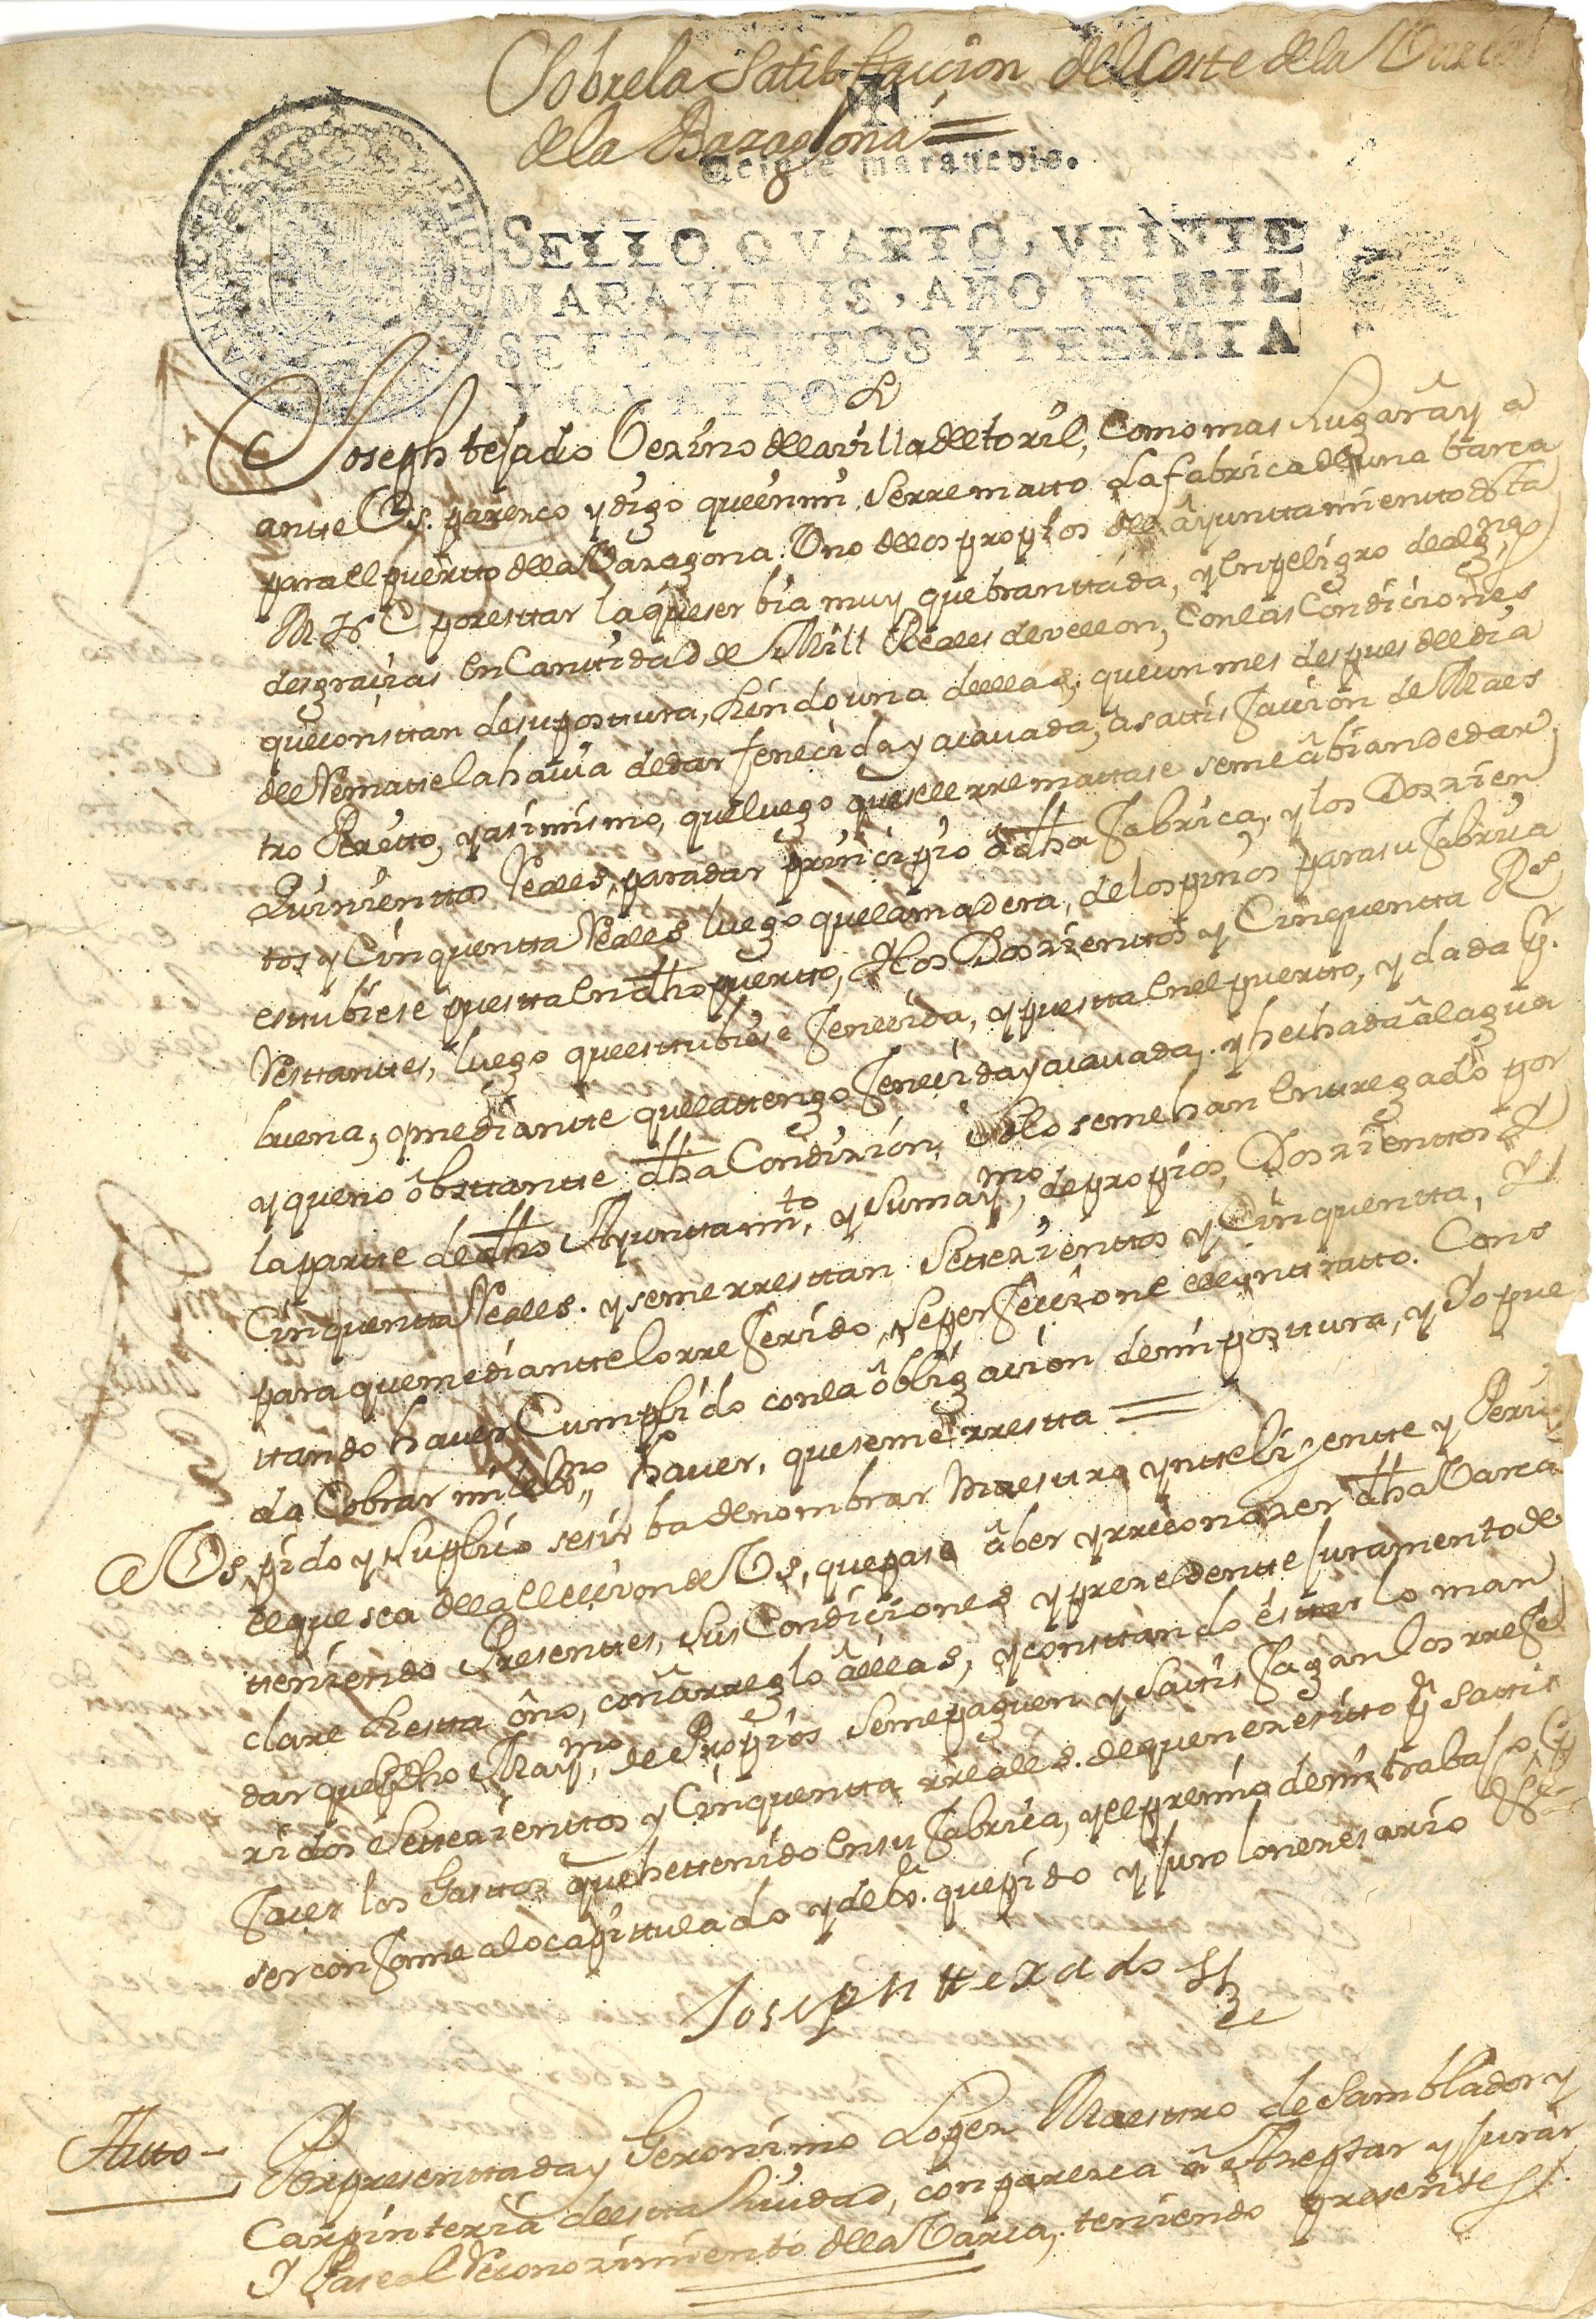 Sobre la Satisfaccion del Coste de la Varca
de la Bazagona =
Veinte maravedis.
SELLO QVARTO, VEINTE
MARAVEDIS, AÑO DE MIL
SETECIENTOS Y TREINTA
Y QVATRO
Joseph tejado Vezino de la villa del toril, Como mas lugar aya
antte Vs. parezco y digo que en mi, Se rremato la fabrica de una barca
para el puertto de la Bazagona, Uno de los propios del ayuntamientto de esta
M. N. C por esttar la que serbia muy quebranttada, y en peligro de alg.nas
desgracias en Canttidad de Mill Reales de vellon, Con las Condiciones
que consttan de su posttura, siendo una de ellas, que un mes despues del dia
del Rematte la havia de dar fenecida y acavada, a sattisfacion de Maes
tro Peritto, y asimismo, que luego que se le rremattase se me abian de dar
Quinienttos Reales, para dar principio a dha fabrica, y los Doszien
tos y Cinquentta Reales luego que la madera, de los pinos para su fabrica
esttubiese puestta en dho puertto, Y los Doszienttos y Cinquentta Rs
Resttanttes, luego que esttubiese fenecida, y puestta en el puertto, y dada p.r
buena, y mediantte que la ttengo fenecida y acavada, y hechada al agua
y que no obsttantte dha Condizion, solo se me han enttregado por
la partte de dho Ayunttam.to, y su may.mo, de propios, Doszienttos y
Cinquentta Reales. y se me rresttan Settezienttos y Cinquentta, Y
para que mediantte lo rreferido, se perfeczione el conttratto. Cons
ttando haver Cumplido con la obligacion de mi posttura, y Yo pue
da Cobrar mi lex.mo haver, que se me rrestta =
A Vs. pido y suplico se sirba de nombrar Maesttro ynttelijentte y Peritto
el que sea de la eleccion de Vs, que pase a ber y rreconozer dha Varca
tteniendo Presenttes, sus Condiciones y prezedentte Juramento de
clare si estta o no, con arreglo a ellas, y consttando esttar lo man
dar que dho May.mo, de Propios se me paguen y Sattisfagan los rrefe
ridos Settezienttos y Cinquentta rreales. de que nezesitto p.a Sattis
facer los Gasttos que he ttenido en su fabrica, y el premio de mi trabajo
ser conforme a lo capittulado y de Js.a que pido y Juro lo nezesario
Joseph ttexado
Autto Por presenttada y Geronimo Lopez Maesttro de Samblador y
Carpinteria de estta Ciudad, comparezca a Azeptar y Jurar
Y Pase al Reconozimiento de la Varca, teniendo presentes